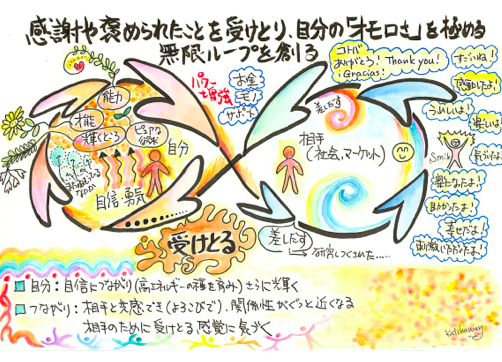 感謝や褒められたことを受けとり、自分の「オモロさ」を極める
無限ループを創る
コトバ
ありがとう! Thank you!
Gracias!
すごいね!
感動したよ!
うれしいよ!
楽しいよ!
Smile
気づいたよ!
楽になったよ!
助かったよ!
幸せだよ!
刺激いただいたよ!
パワー
増強
お金
モノ
サポート
能力
才能
輝くどころ
自分
自信・勇気
差しだす
相手
(社会、マーケット)
受けとる
差しだす
自分:自信につながり(高エネルギーの種を育み)さらに輝く
つながり:相手と共感でき(よろこびで)、関係性がぐっと近くなる
相手のために受けとる感覚に気づく